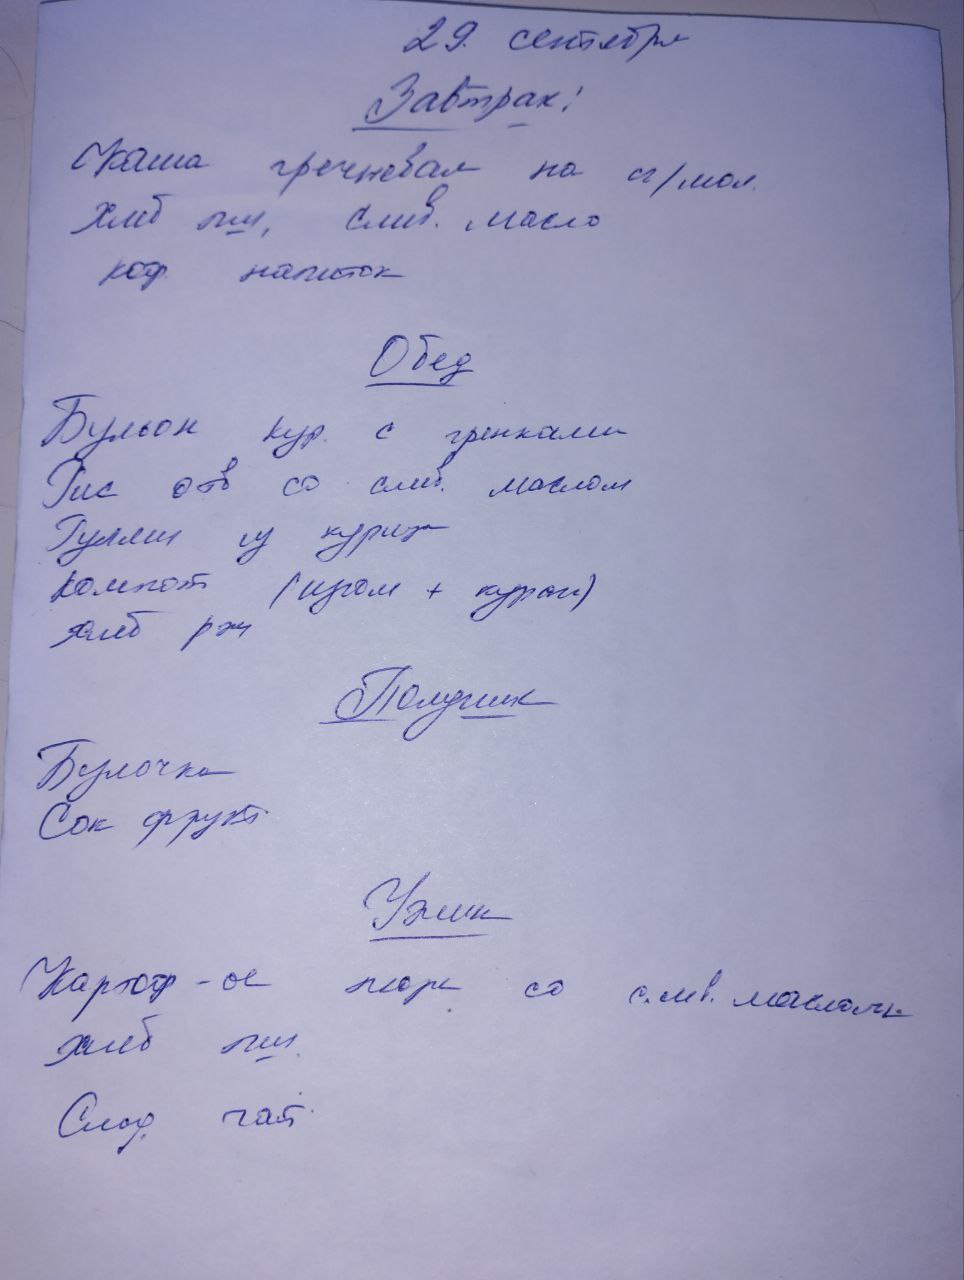 29. сентября
Завтрак:
Каша гречневая на сг/мол.
Хлеб пш, слив. масло
коф. напиток
Обед
Бульон кур. с гренками
Рис отв со слив. маслом
Гуляш из курицы
Компот (изюм + курага)
Хлеб рж
Полдник
Булочка
Сок фрукт.
Ужин
Картоф-ое пюре со слив. маслом
Хлеб пш.
Слад. чай